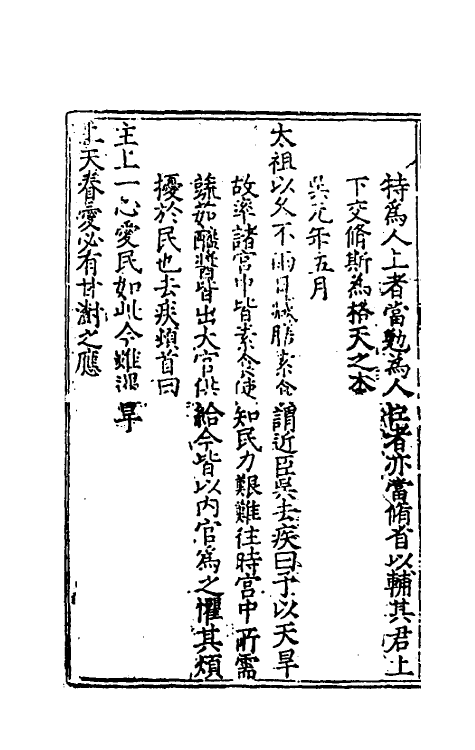 特為人上者當勉為人臣者亦當脩省以輔其君上
下交脩斯為格天之本
吳元年五月
太祖以久不雨日減膳素食謂近臣吳去疾曰予以天旱
故率諸宮中皆素食使知民力艱難往時宮中所需
蔬茹醯醬皆出大官供給今皆以内官為之懼其煩
擾於民也去疾頓首曰
主上一心愛民如此今雖旱
上天眷愛必有甘澍之應